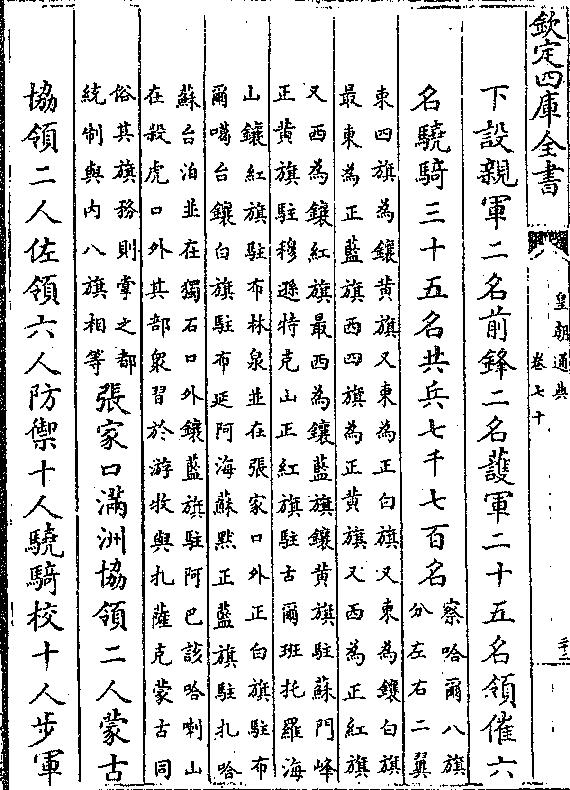 欽定四庫全書
皇朝通典
卷七十
下設親軍二名前鋒二名護軍二十五名領催六
名驍騎三十五名共兵七千七百名
察哈爾八旗
分左右二翼
東四旗為鑲黃旗又東為正白旗又東為鑲白旗
最東為正藍旗西四旗為正黃旗又西為正紅旗
又西為鑲紅旗最西為鑲藍旗鑲黃旗駐蘇門峰
正黃旗駐穆遜特克山正紅旗駐古爾班托羅海
山鑲紅旗駐布林泉並在張家口外正白旗駐布
爾噶台鑲白旗駐布延阿海蘇默正藍旗駐扎哈
蘇台泊並在獨石口外鑲藍旗駐阿巴該哈喇山
在殺虎口外其部眾習於游牧與扎薩克蒙古同
俗其旗務則掌之都
統制與內八旗相等
張家口滿洲協領二人蒙古
協領二人佐領六人防禦十人驍騎校十人步軍